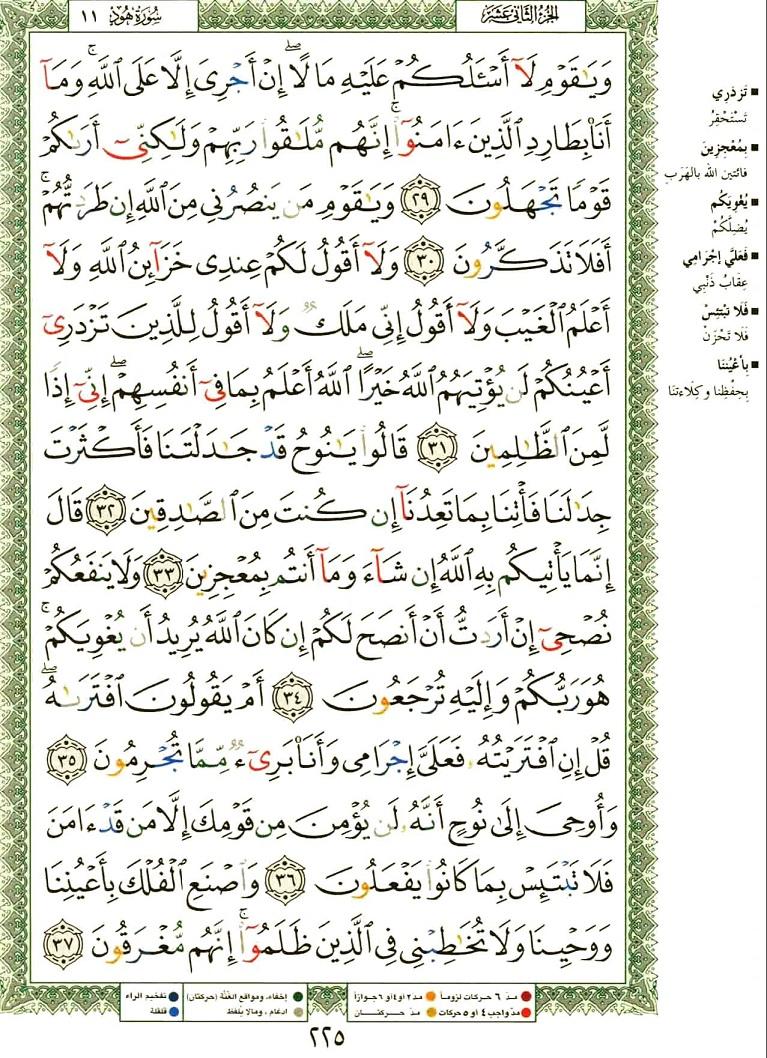 الجزء الثاني عشر
سورة هود ١١
وَيَٰقَوْمِ لَآ أَسْـَٔلُكُمْ عَلَيْهِ مَالًا ۖ إِنْ أَجْرِىَ إِلَّا عَلَى ٱللَّهِ ۚ وَمَآ
أَنَا۠ بِطَارِدِ ٱلَّذِينَ ءَامَنُوٓا۟ ۚ إِنَّهُم مُّلَٰقُوا۟ رَبِّهِمْ وَلَٰكِنِّىٓ أَرَىٰكُمْ
قَوْمًا تَجْهَلُونَ ٢٩ وَيَٰقَوْمِ مَن يَنصُرُنِى مِنَ ٱللَّهِ إِن طَرَدتُّهُمْ ۚ
أَفَلَا تَذَكَّرُونَ ٣٠ وَلَآ أَقُولُ لَكُمْ عِندِى خَزَآئِنُ ٱللَّهِ وَلَآ
أَعْلَمُ ٱلْغَيْبَ وَلَآ أَقُولُ إِنِّى مَلَكٌ وَلَآ أَقُولُ لِلَّذِينَ تَزْدَرِىٓ
أَعْيُنُكُمْ لَن يُؤْتِيَهُمُ ٱللَّهُ خَيْرًا ۖ ٱللَّهُ أَعْلَمُ بِمَا فِىٓ أَنفُسِهِمْ ۖ إِنِّىٓ إِذًا
لَّمِنَ ٱلظَّٰلِمِينَ ٣١ قَالُوا۟ يَٰنُوحُ قَدْ جَٰدَلْتَنَا فَأَكْثَرْتَ
جِدَٰلَنَا فَأْتِنَا بِمَا تَعِدُنَآ إِن كُنتَ مِنَ ٱلصَّٰدِقِينَ ٣٢ قَالَ
إِنَّمَا يَأْتِيكُم بِهِ ٱللَّهُ إِن شَآءَ وَمَآ أَنتُم بِمُعْجِزِينَ ٣٣ وَلَا يَنفَعُكُمْ
نُصْحِىٓ إِنْ أَرَدتُّ أَنْ أَنصَحَ لَكُمْ إِن كَانَ ٱللَّهُ يُرِيدُ أَن يُغْوِيَكُمْ ۚ
هُوَ رَبُّكُمْ وَإِلَيْهِ تُرْجَعُونَ ٣٤ أَمْ يَقُولُونَ ٱفْتَرَىٰهُ ۖ
قُلْ إِنِ ٱفْتَرَيْتُهُۥ فَعَلَىَّ إِجْرَامِى وَأَنَا۠ بَرِىٓءٌ مِّمَّا تُجْرِمُونَ ٣٥
وَأُوحِىَ إِلَىٰ نُوحٍ أَنَّهُۥ لَن يُؤْمِنَ مِن قَوْمِكَ إِلَّا مَن قَدْ ءَامَنَ
فَلَا تَبْتَئِسْ بِمَا كَانُوا۟ يَفْعَلُونَ ٣٦ وَٱصْنَعِ ٱلْفُلْكَ بِأَعْيُنِنَا
وَوَحْيِنَا وَلَا تُخَٰطِبْنِى فِى ٱلَّذِينَ ظَلَمُوٓا۟ ۚ إِنَّهُم مُّغْرَقُونَ ٣٧
■ تَزدَرِي
تَسْتَحْقِرُ
■ بِمُعْجِزِينَ
فائتين الله بالهَرَبِ
■ يُغْوِيَكُم
يُضِلَّكُمْ
■ فَعَلَيَّ إجْرَامِي
عِقَابُ ذَنْبِي
■ فَلَا تَبْتَئِسْ
فَلَا تَحْزَنْ
■ بِأعْيُنِنَا
بِحِفْظِنا وكِلَاءتنا
مدّ ٦ حركات لزوماً
مدّ ٢ أو ٤ أو ٦ جوازاً
مدّ واجب ٤ أو ٥ حركات
مدّ حركتان
إخفاء، ومواقع الغُنَّة (حركتان)
إدغام، ومالا يُلفظ
تفخيم الراء
قلقلة
٢٢٥